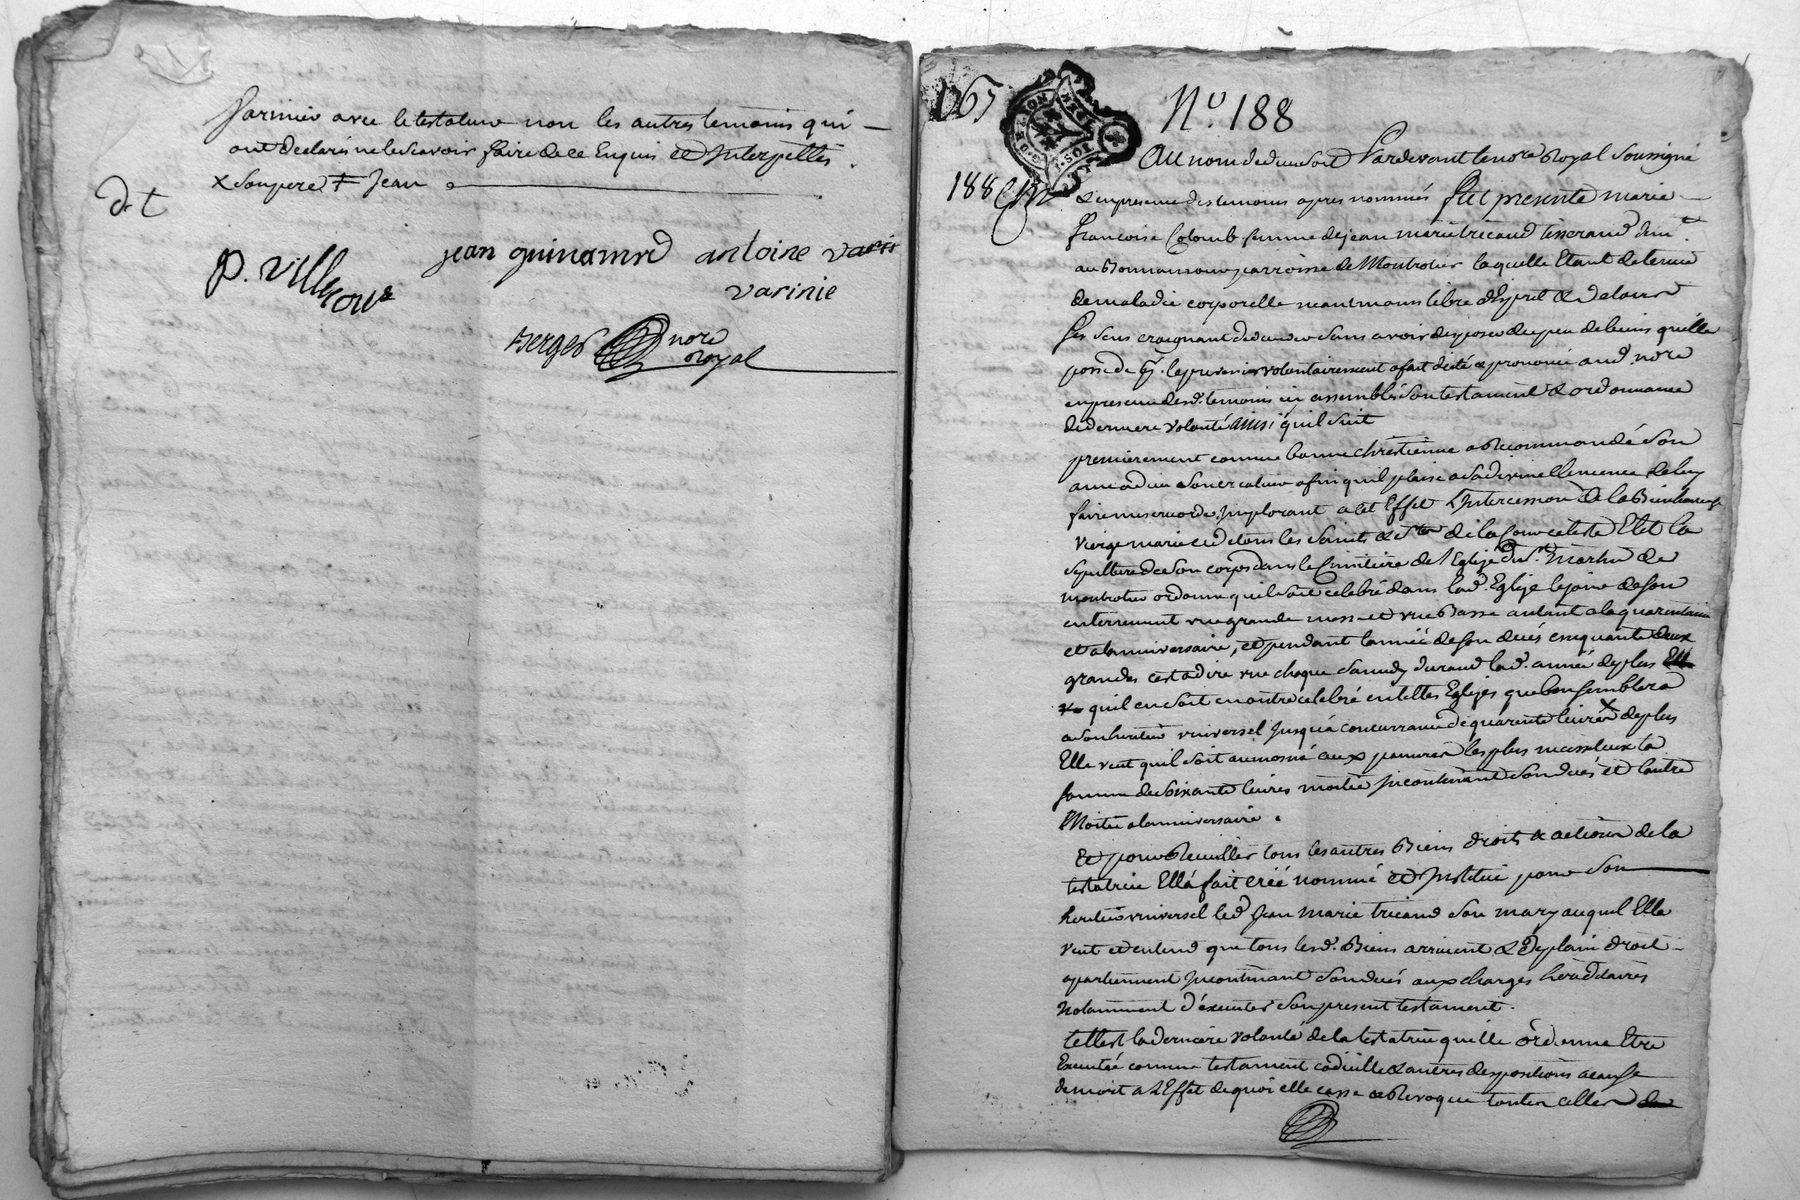 farinier avec le testateur non les autres temoins qui —
ont declaré ne le scavoir faire de ce Enquis et Interpellés .
x Soupere ‡ Jean
d t
jean guinamard antoine varir
P. Villecour
varinie
Berger nore
Royal
1765
Nº. 188
188
Au nom de dieu soit Pardevant le nore Royal Soussigné
& en presence des temoins apres nommés fut presente marie
francoise Colomb femme de jean marie tricaud tisserand dem.t
au Bonnansous parroisse de Montrotier laquelle Etant detenue
de maladie corporelle neantmoins libre d'Esprit & de tous
ses sens craignant de deceder sans avoir disposé du peu de biens qu'elle
possede q. le pnt. volontairement a fait dicté & prononcé aud. nore
en presence desd. temoins icy assemblés son testament & ordonnance
de derniere volonté ainsi qu'il suit
premierement comme bonne chrétienne a Recommandé son
ame a dieu son createur afin qu'il plaise a sa divine Clemence de luy
faire misericorde, Implorant a cet Effet L'Intercession de la Bienheureuse
vierge marie et de tous les saints & Stes de la Cour celeste Elit la
sepulture de son corps dans le Cimitiere de l'Eglise du St. Martin de
montrotier ordonne qu'il soit celebré dans lad. Eglise le jour de son
enterrement une grande messe et une Basse autant a la quarantaine
et a l'anniversaire, et pendant l'année de son decés cinquante deux
grandes c'est a dire une chaque Samedy durant lad. année de plus
qu'il en soit en outre celebré en telles Eglises que bon semblera
a son heritier universel jusqu'a concurrance de quarante livres x de plus
Elle veut qu'il soit aumosné aux pauvres les plus necessiteux la
somme de soixante livres moitié Incontinant son decés et l'autre
Moitié a l'anniversaire .
Et pour Recueillir tous les autres Biens droits & actions de la
testatrice Ell'a fait créé nommé et Institué pour son
heritier universel led. Jean marie tricaud son mary auquel Elle
veut et entend que tous lesd. Biens arrivent & de plain droit
apartiennent Incontinant son decés aux charges hereditaires
notamment d'executer son present testament.
telle est la derniere volonté de la testatrice qu'elle ordonne Etre
Executée comme testament codicille & autres dispositions a cause
de mort a l'Effet de quoi elle casse & Revoque toutes celles